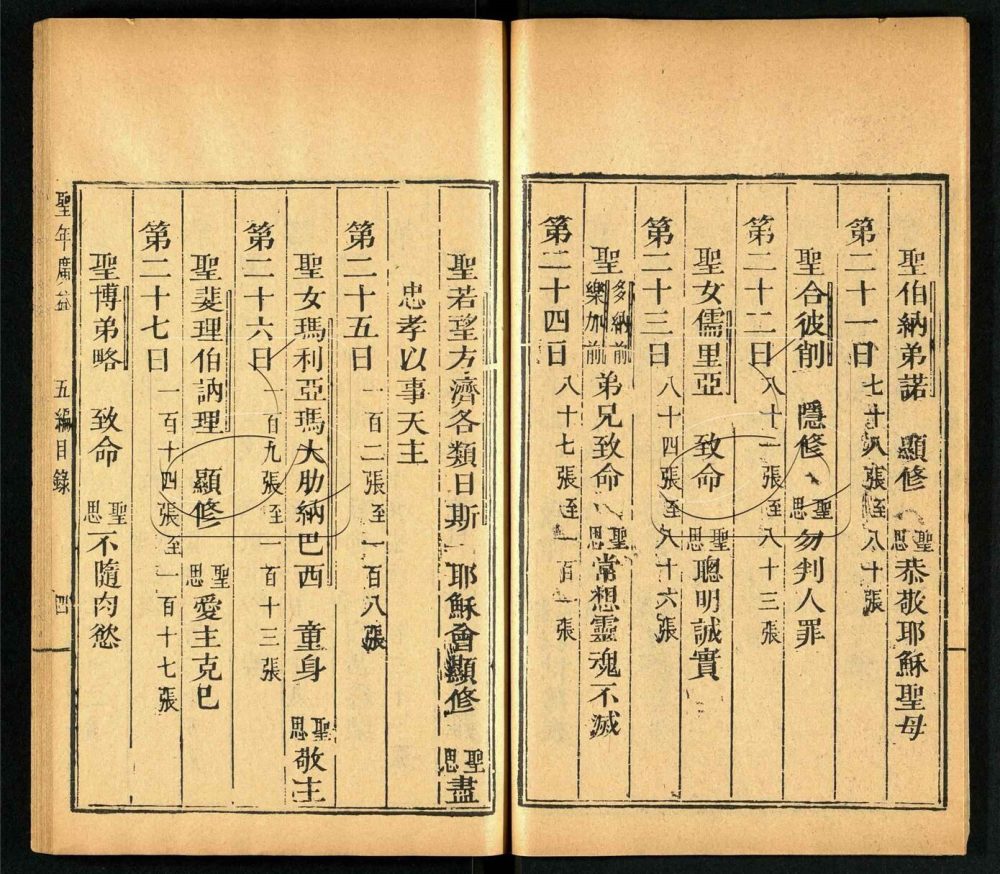 聖伯納弟諾 顯修 聖思恭敬耶穌聖母
第二十一日 七十八張至八十張
聖合彼削 隱修 聖思勿判人罪
第二十二日 八十一張至八十三張
聖女儒里亞 致命 聖思聰明誠實
第二十三日 八十四張至八十六張
聖多納前樂加前弟兄致命 聖思常想靈魂不滅
第二十四日 八十七張至一百一張
聖若望方濟各類日斯 耶穌會顯修 聖思盡
忠孝以事天主
第二十五日 一百二張至一百八張
聖女瑪利亞瑪大肋納巴西 童身 聖思敬主
第二十六日 一百九張至一百十三張
聖斐理伯訥理 顯修 聖思愛主克己
第二十七日 一百十四張至一百十七張
聖博弟略 致命 聖思不隨肉慾
聖年廣益 五編目錄 四